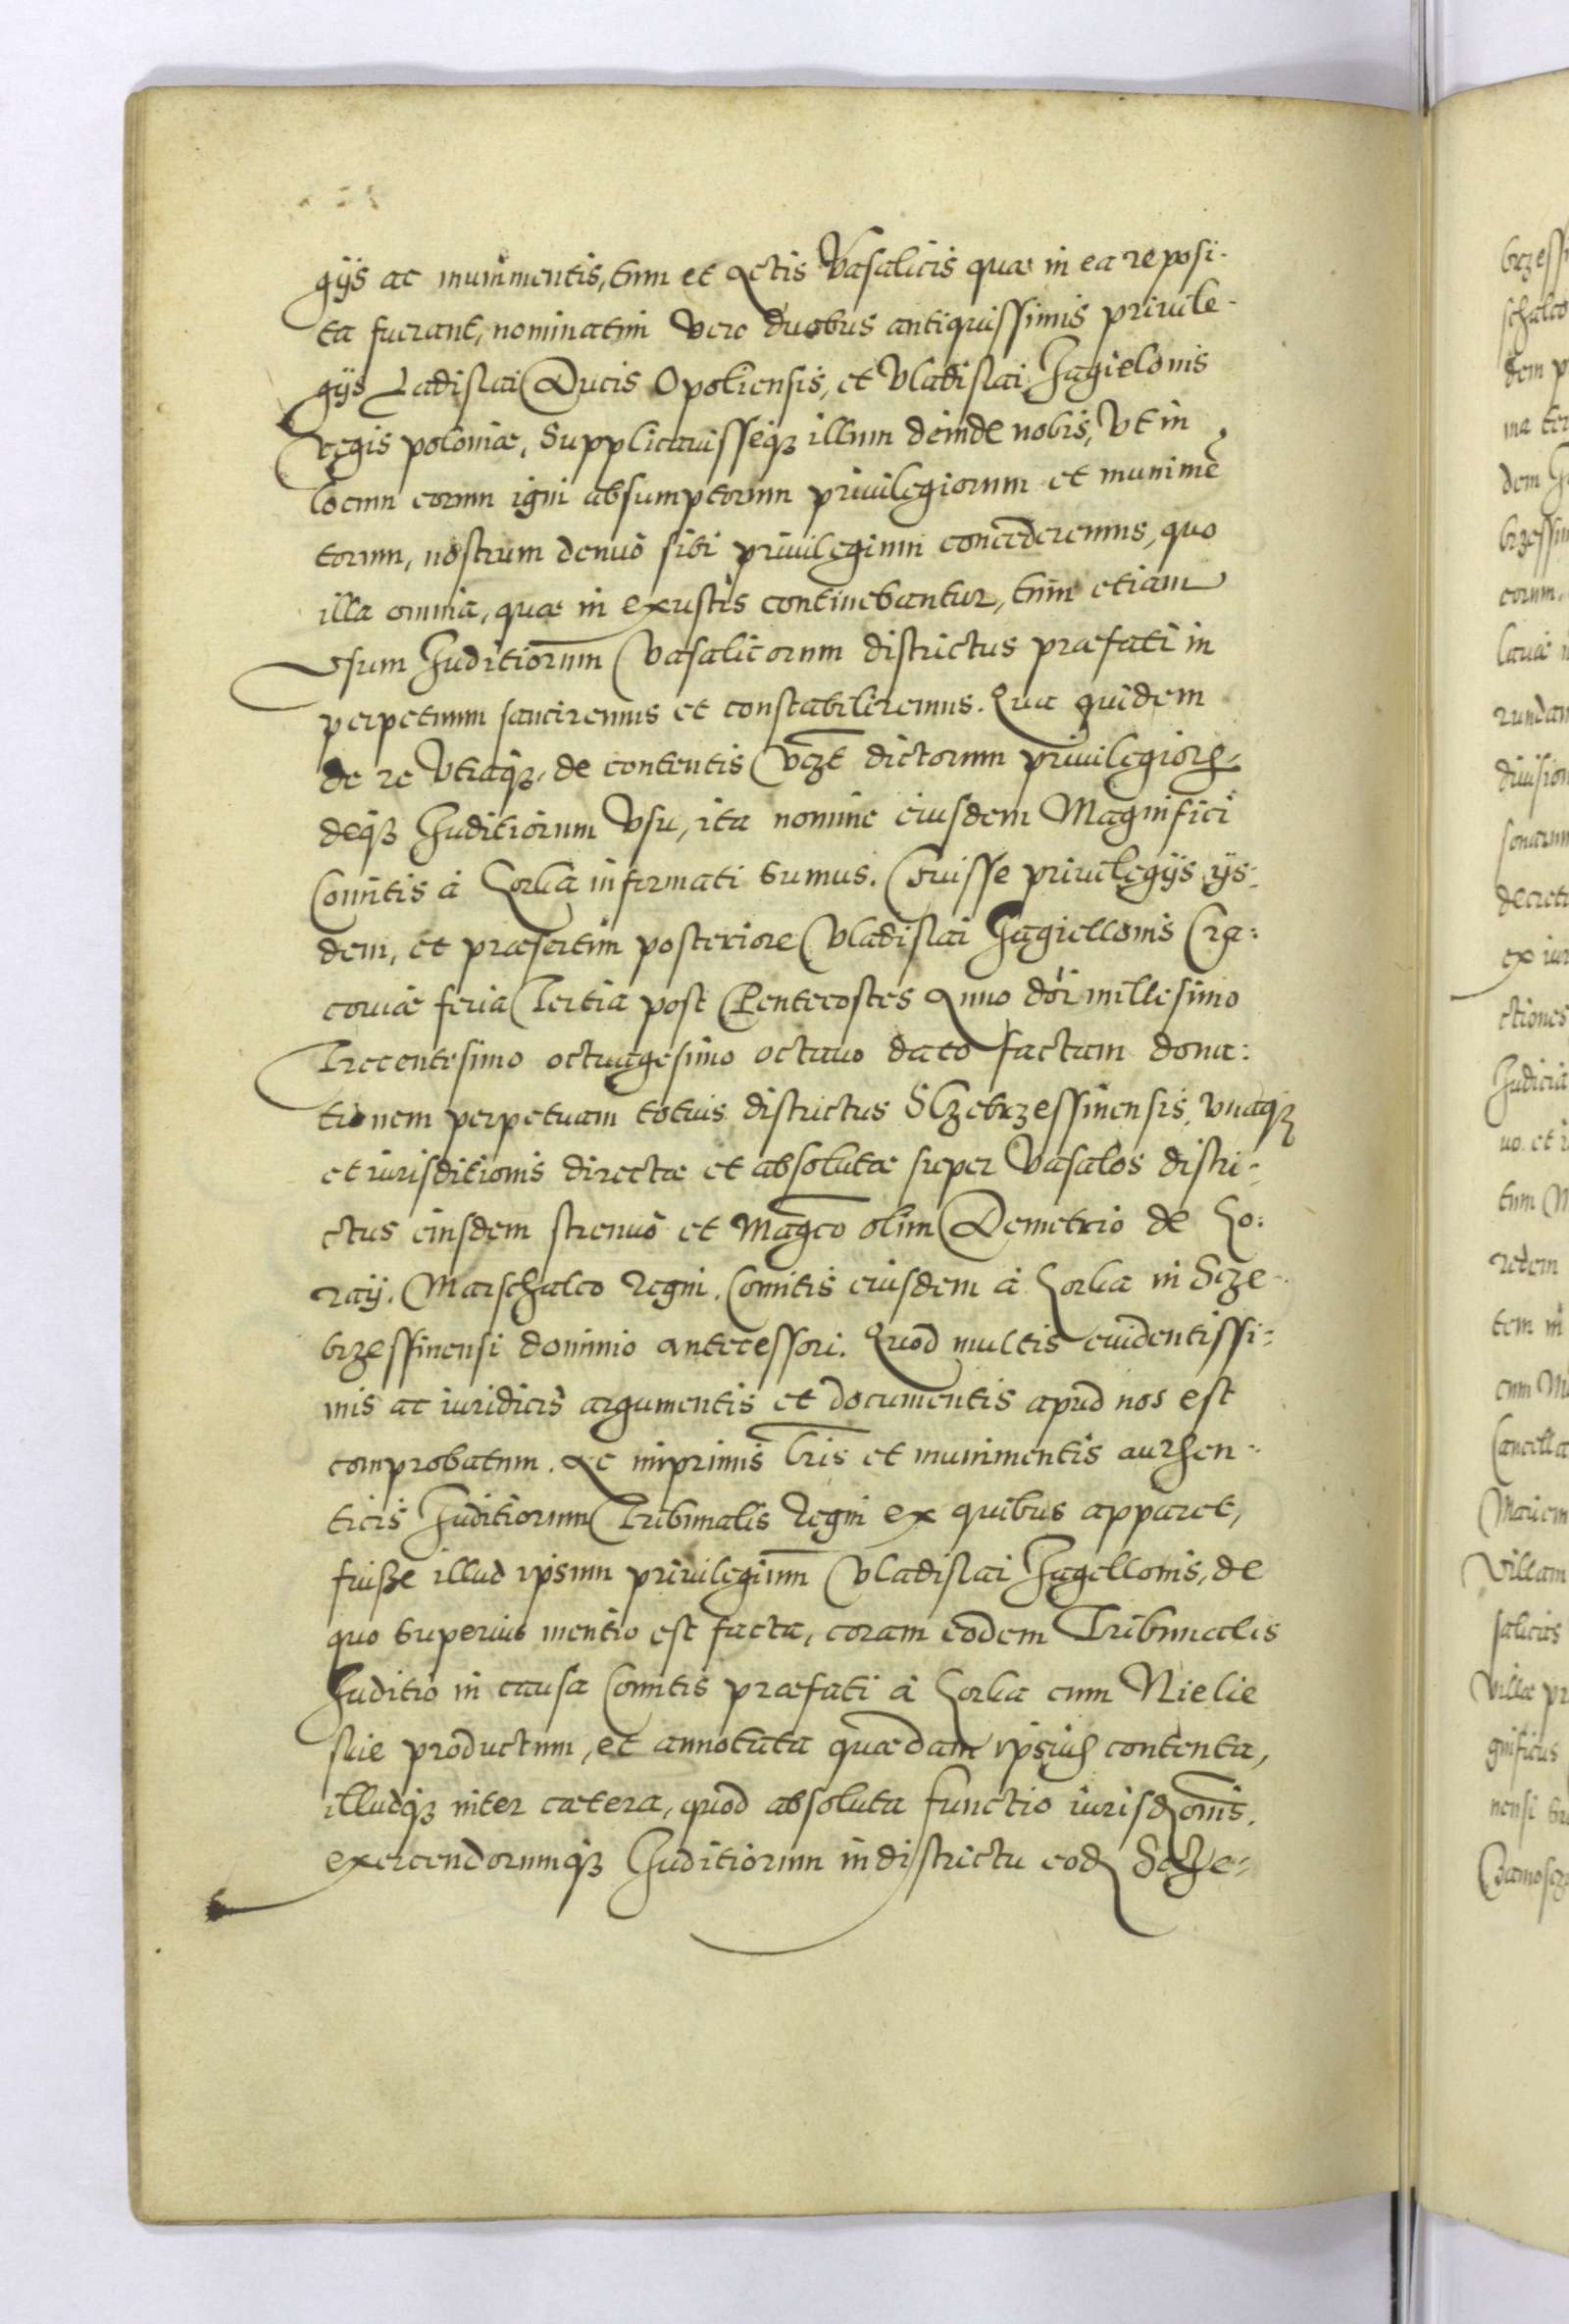 gijs ac munimentis, tum et Actis Vasalicis quæ in ea reposi-
ta fuerant, nominatim vero duobus antiquissimis priuile-
gijs Ladislai Ducis Opoliensis, et Vladislai Jagielonis
regis poloniæ, Supplicauisseqȝ illum deinde nobis, Vt in
locum eorum igni absumptorum priuilegiorum et munimē
torum, nostrum denuò sibi priuilegium concederemus, quo
illa omnia, quæ in exustis continebantur, tum etiam
Vsum Juditiorum Vasalicorum districtus præfati in
perpetuum sanciremus et constabiliremus. Qua quidem
de re Vtraqȝ, de contentis Vzt dictorum priuilegiorꝝ,
deqȝ Juditiorum Vsu, ita nomine eiusdem Magnifici
Comitis à Gorka informati sumus. Fuisse priuilegijs ijs-
dem, et præsertim posteriore Vladislai Jagiellonis Cra:
couiæ feria Tertia post Pentecostes Anno dōi millesimo
Trecentesimo octuagesimo octauo dato factam dona:
tionem perpetuam totius districtus Sczebrzessinensis, vnaqȝ
et iurisditionis directæ et absolutæ super Vasalos distri-
ctus eiusdem strenuò et Magco olim Demetrio de Go:
raij. Marschalco Regni. Comitis eiusdem à Gorka in Scze-
brzessinensi dominio antecessori. Quod multis euidentissi-
mis ac iuridicis argumentis et documentis apud nos est
comprobatum. Ac imprimis Lris et munimentis authen-
ticis Juditiorum Tribunalis Regni ex quibus apparet,
fuisse illud ipsum priuilegium Vladislai Jagellonis, de
quo superius mentio est facta, coram eodem Tribunalis
Juditio in causa Comitis præfati à Gorka cum Nielie
skie productum, et annotata quædam ipsius contenta,
illudqȝ inter cætera, quod absoluta functio iurisdonis.
exercendorumqȝ Juditiorum in districtu eod Scze-